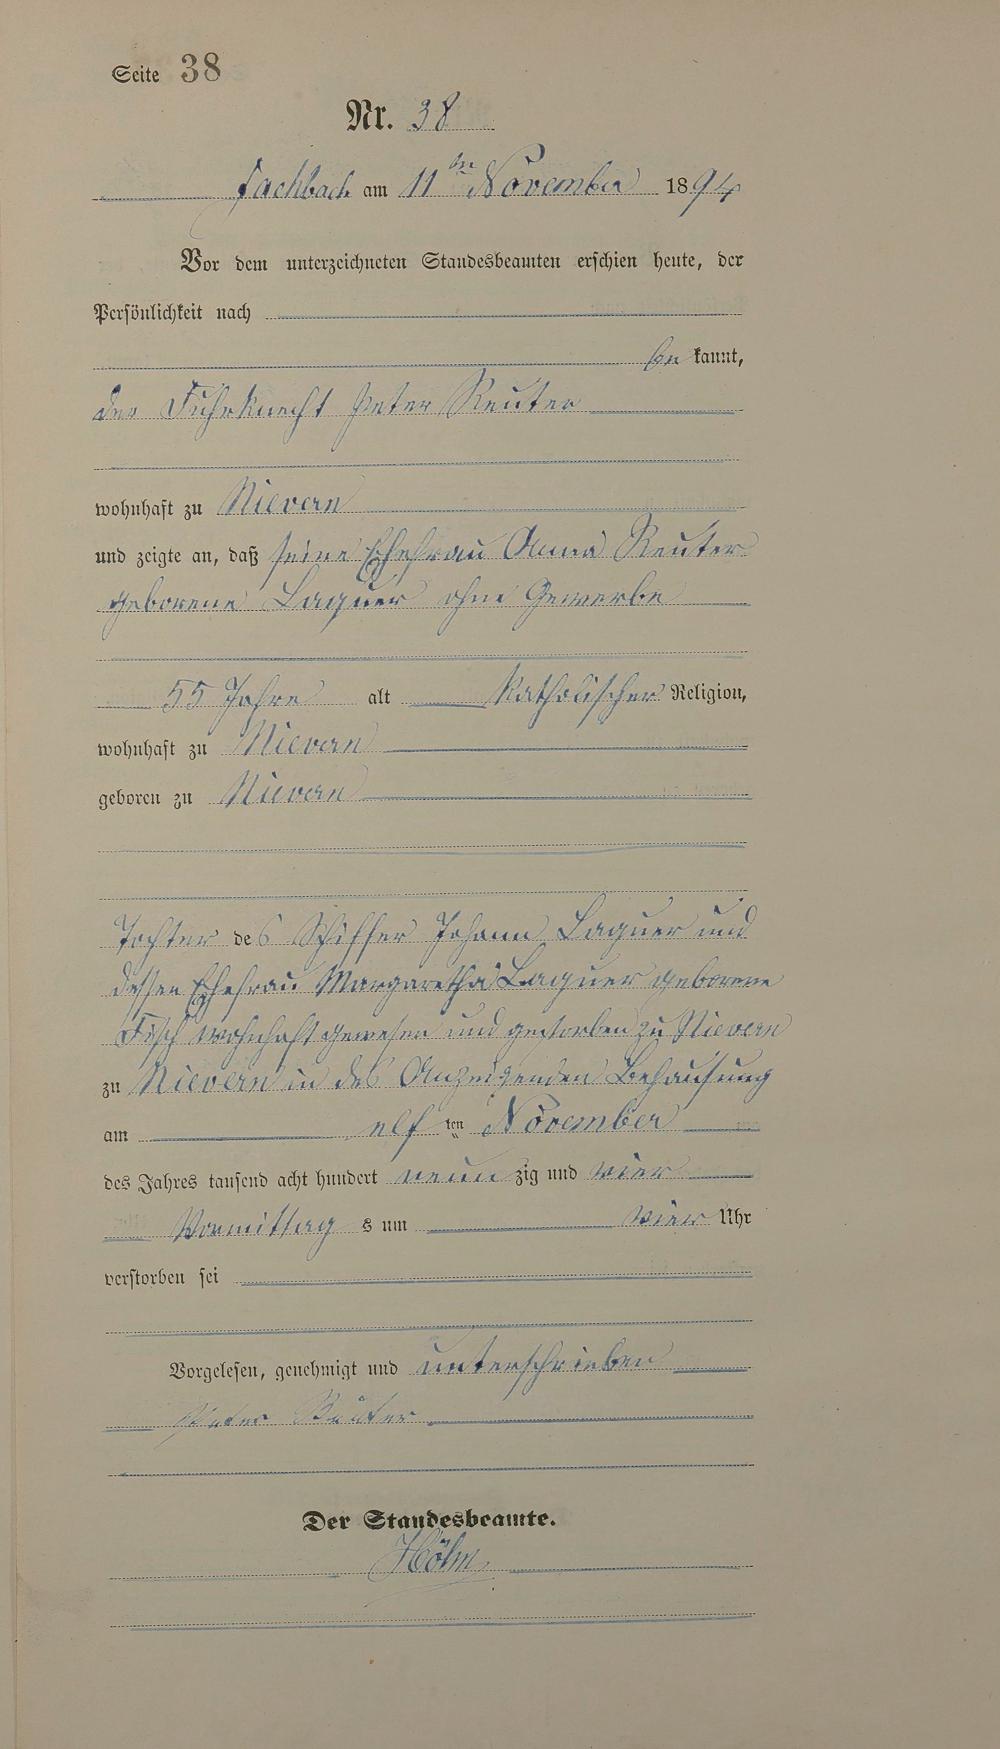 Seite 38
Nr. 38
Fachbach am 11ten November 1894
Vor dem unterzeichneten Standesbeamten erschien heute, der
Persönlichkeit nach
be kannt,
der Fuhrknecht Peter Reuter
wohnhaft zu Nievern
und zeigte an, daß seine Ehefrau Anna Reuter
geborene Laquer ohne Gewerbe
55 Jahre alt katholischer Religion,
wohnhaft zu Nievern
geboren zu Nievern
Tochter des Schiffer Johann Laquer und
dessen Ehefrau Margaretha Laquer geborene
Fisch wohnhaft gewesen und gestorben zu Nievern
zu Nievern in des Anzeigenden Behausung
am elf ten November
des Jahres tausend acht hundert neun zig und vier
Vormittag s um vier Uhr
verstorben sei
Vorgelesen, genehmigt und unterschrieben
Peter Reuter
Der Standesbeamte.